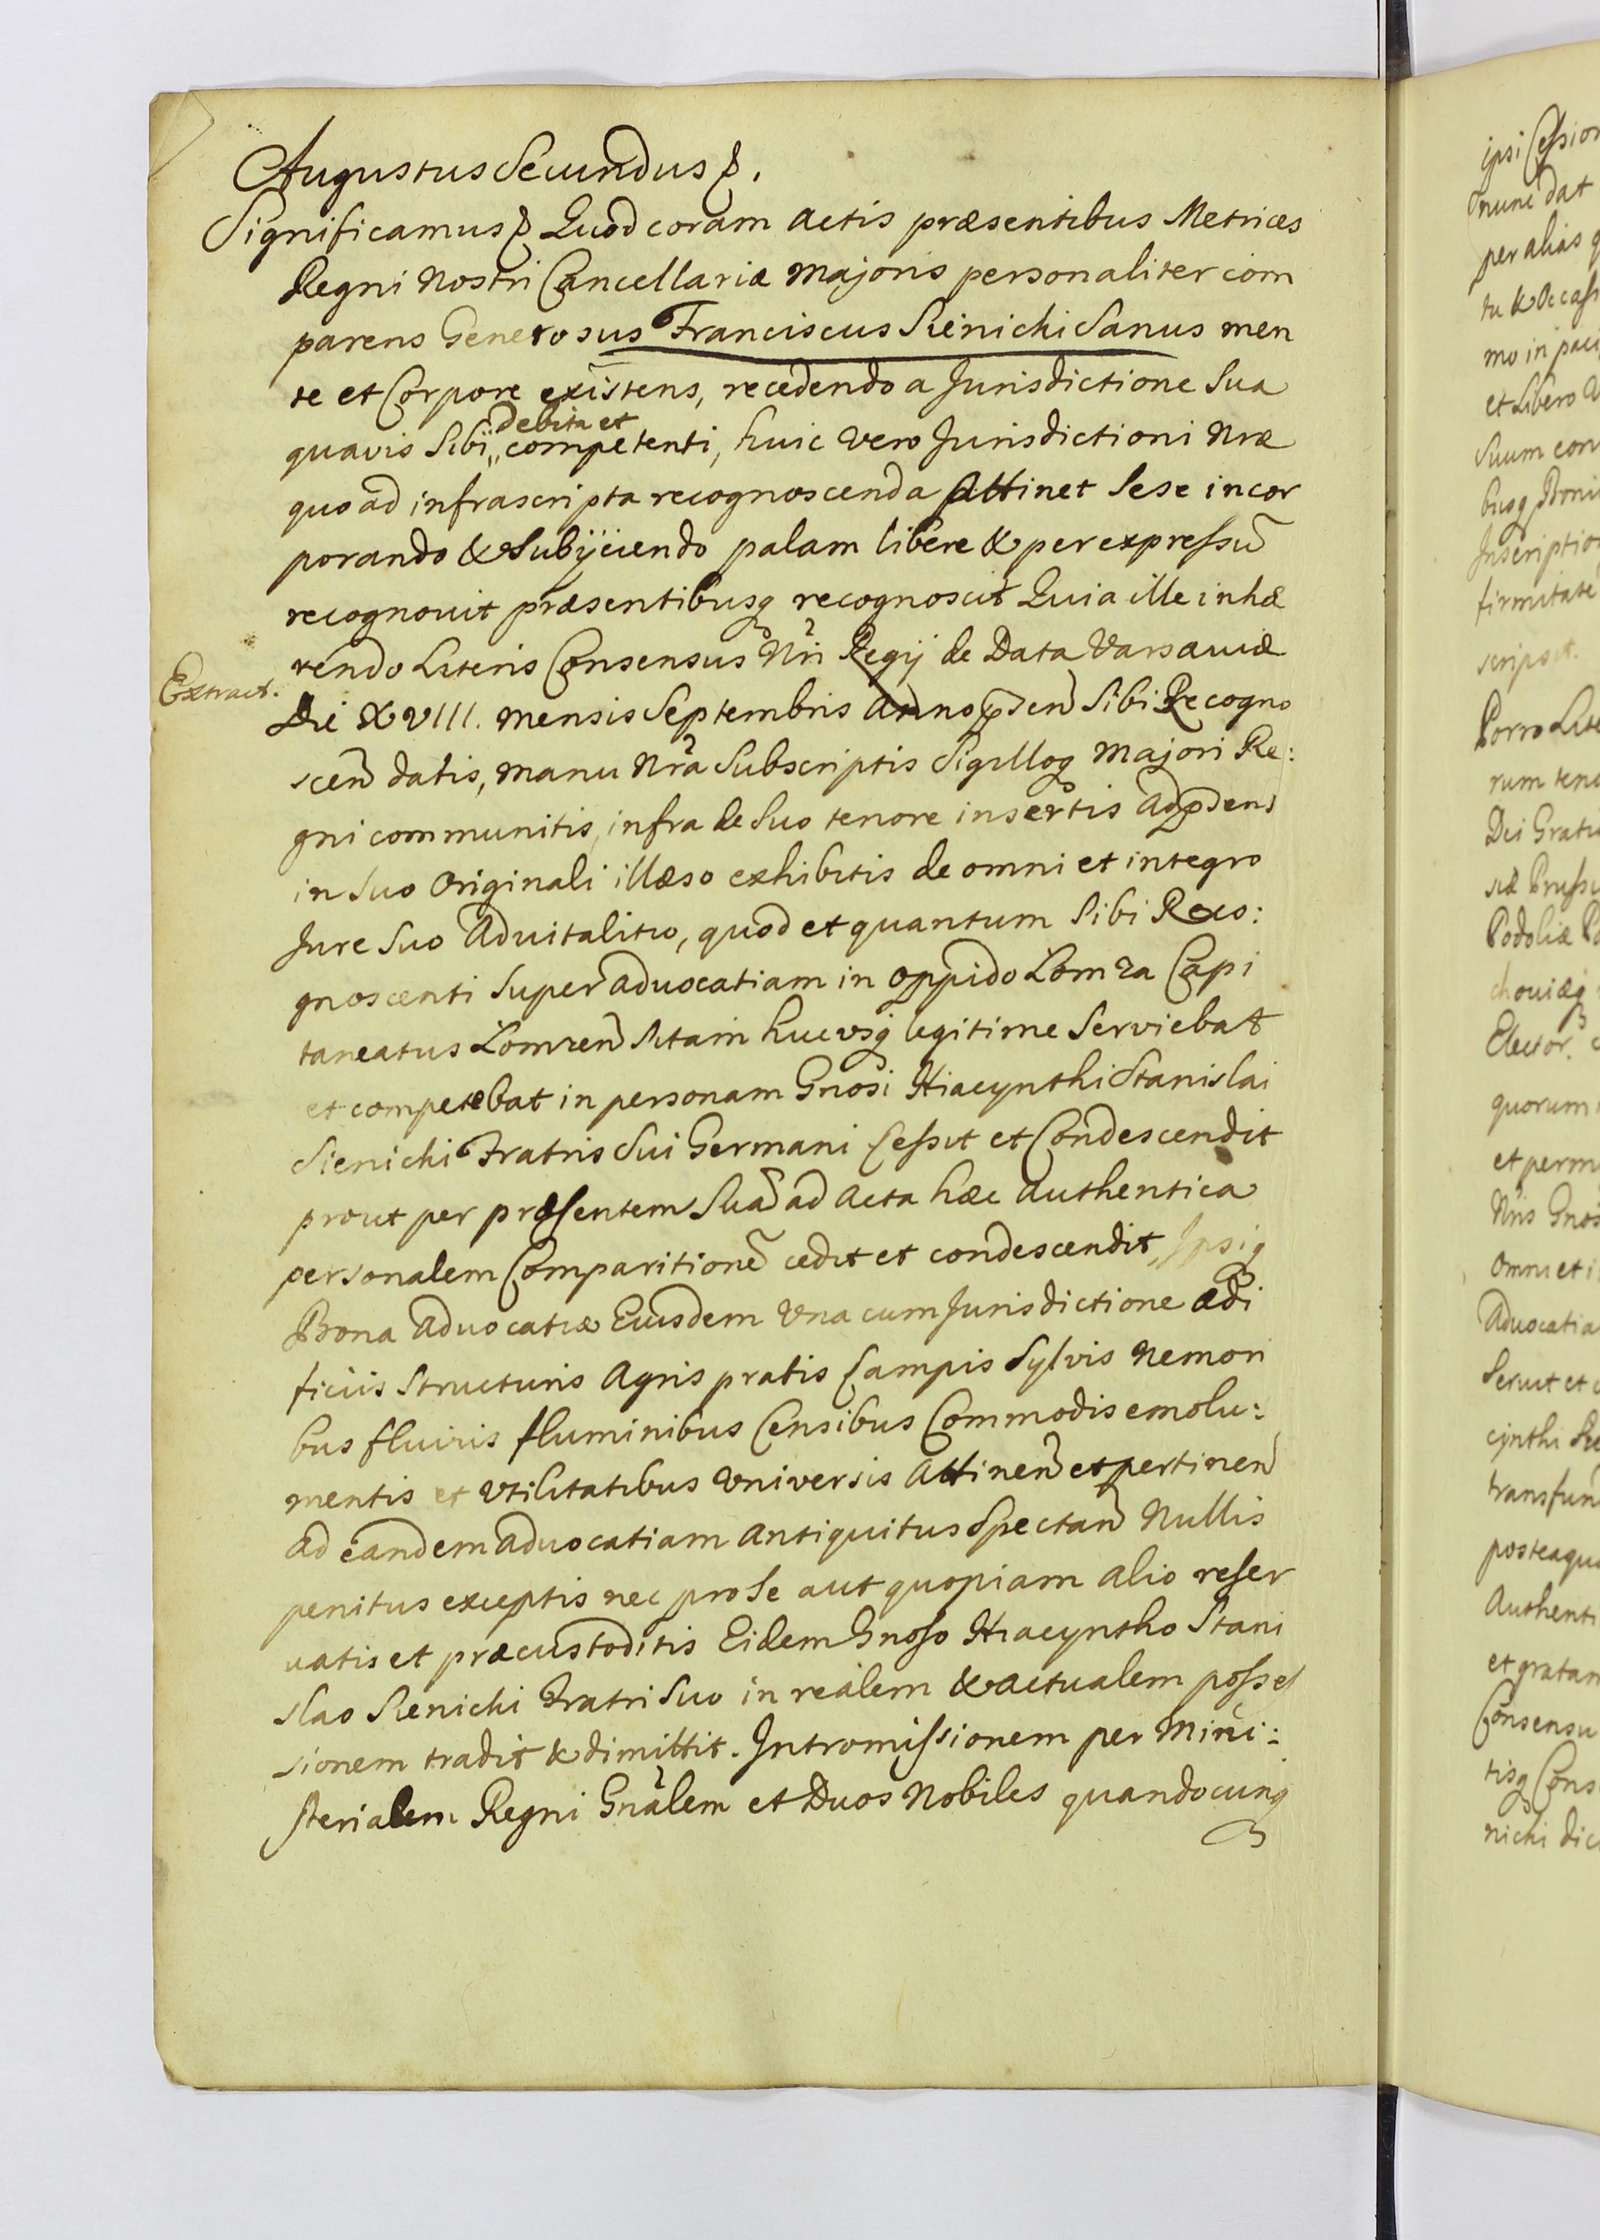 Augustus Secundus &.
Significamus & Quod coram actis præsentibus Metrices
Regni Nostri Cancellariæ Majoris personaliter com
parens Generosus Franciscus Sienichi Sanus men
te et Corpore existens, recedendo a Jurisdictione Sua
debita et
quavis Sibi competenti, huic vero Jurisdictioni Nræ
quo ad infrascripta recognoscenda Attinet Sese incor
porando & Subÿciendo palam libere & per expressũ
recognovit præsentibusq recognoscit Quia ille inhæ
rendo Literis Consensus Nri Regij de Data Varsaviæ
Extract.
Die XVIII. mensis Septembris Anno pñden Sibi Recogno
scen datis, manu Nra Subscriptis Sigilloq Majori Re:
gni communitis, infra de Suo tenore insertis ad
in Suo Originali illæso exhibitis de omni et integro
Jure Suo Advitalitio, quod et quantum Sibi Reco:
gnoscenti Super advocatiam in oppido Lomza Capi
taneatus Lomzen Sitam hucvsq legitime Serviebat
et competebat in personam Gnosi Hiacynthi Stanislai
Sienichi Fratris Sui Germani Cessit et Condescendit
prout per præsentem Suã ad acta hæc authentica
personalem Comparitionẽ cedit et condescendit, Ipsiq
Bona advocatiæ Eiusdem Una cum Jurisdictione ædi
ficiis Structuris Agris pratis Campis Sylvis Nemori
bus fluviis fluminibus Censibus Commodis emolu:
mentis et Vtilitatibus Vniversis Attinen et pertinen
ad eandem advocatiam antiquitus Spectan Nullis
penitus exceptis nec pro Se aut quopiam alio reser
vatis et præcustoditis Eidem Gnoso Hiacyntho Stani
slao Sienichi Fratri Suo in realem & actualem posses
sionem tradit & dimittit. Intromissionem per Mini:
sterialem Regni Gnalem et Duos Nobiles quandocunq
ipsi Cession
nunc dat
per alias q
mo in paci
et Libero
Suum con
busq Boni
Inscription
firmitate
scripsit.
Porro Lite
rum teno
Dei Gratia
Podoliæ Po
choviæq
Elector.
quorum
et perm
Nris Gnos
omni et i
Advocatia
Servit et c
cynthi Sie
transfun
posteaqua
Authenti
et gratam
Consensu
tisq Cons
nichi dic